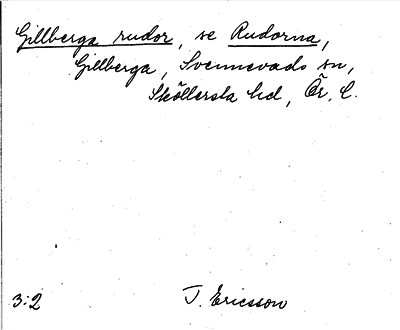 Gillberga rudor, se Rudorna,
Gillberga, Svennevads sn,
Sköllersta hd, Ör. l.
3:2 J. Ericsson